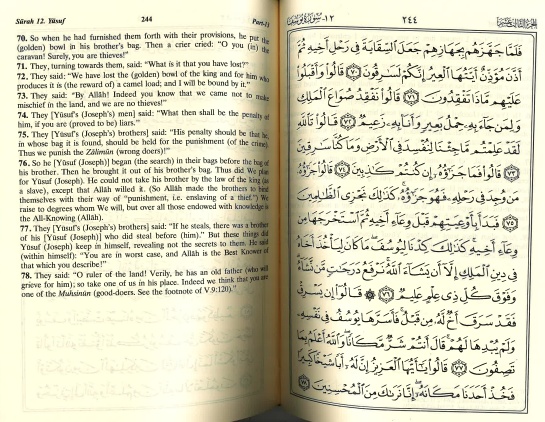 Sûrah 12. Yûsuf 244 Part-13
70. So when he had furnished them forth with their provisions, he put the
(golden) bowl in his brother's bag. Then a crier cried: "O you (in) the
caravan! Surely, you are thieves!"
71. They, turning towards them, said: "What is it that you have lost?"
72. They said: "We have lost the (golden) bowl of the king and for him who
produces it is (the reward of) a camel load; and I will be bound by it."
73. They said: "By Allâh! Indeed you know that we came not to make
mischief in the land, and we are no thieves!"
74. They [Yûsuf's (Joseph's) men] said: "What then shall be the penalty of
him, if you are (proved to be) liars."
75. They [Yûsuf's (Joseph's) brothers] said: "His penalty should be that he,
in whose bag it is found, should be held for the punishment (of the crime).
Thus we punish the Zâlimûn (wrong doers)!"
76. So he [Yûsuf (Joseph)] began (the search) in their bags before the bag of
his brother. Then he brought it out of his brother's bag. Thus did We plan
for Yûsuf (Joseph). He could not take his brother by the law of the king (as
a slave), except that Allâh willed it. (So Allâh made the brothers to bind
themselves with their way of "punishment, i.e. enslaving of a thief.") We
raise to degrees whom We will, but over all those endowed with knowledge is
the All-Knowing (Allâh).
77. They [Yûsuf's (Joseph's) brothers] said: "If he steals, there was a brother
of his [Yûsuf (Joseph)] who did steal before (him)." But these things did
Yûsuf (Joseph) keep in himself, revealing not the secrets to them. He said
(within himself): "You are in worst case, and Allâh is the Best Knower of
that which you describe!"
78. They said: "O ruler of the land! Verily, he has an old father (who will
grieve for him); so take one of us in his place. Indeed we think that you are
one of the Muhsinûn (good-doers. See the footnote of V.9:120)."
الجزء الثالث عشر ٢٤٤ ١٢- سورة يوسف
فَلَمَّا جَهَّزَهُم بِجَهَازِهِمْ جَعَلَ السِّقَايَةَ فِي رَحْلِ أَخِيهِ ثُمَّ
أَذَّنَ مُؤَذِّنٌ أَيَّتُهَا الْعِيرُ إِنَّكُمْ لَسَارِقُونَ ٧٠ قَالُوا وَأَقْبَلُوا
عَلَيْهِم مَّاذَا تَفْقِدُونَ ٧١ قَالُوا نَفْقِدُ صُوَاعَ الْمَلِكِ
وَلِمَن جَاءَ بِهِ حِمْلُ بَعِيرٍ وَأَنَا بِهِ زَعِيمٌ ٧٢ قَالُوا تَاللَّهِ
لَقَدْ عَلِمْتُم مَّا جِئْنَا لِنُفْسِدَ فِي الْأَرْضِ وَمَا كُنَّا سَارِقِينَ
٧٣ قَالُوا فَمَا جَزَاؤُهُ إِن كُنتُمْ كَاذِبِينَ ٧٤ قَالُوا جَزَاؤُهُ
مَن وُجِدَ فِي رَحْلِهِ فَهُوَ جَزَاؤُهُ كَذَلِكَ نَجْزِي الظَّالِمِينَ
٧٥ فَبَدَأَ بِأَوْعِيَتِهِمْ قَبْلَ وِعَاءِ أَخِيهِ ثُمَّ اسْتَخْرَجَهَا مِن
وِعَاءِ أَخِيهِ كَذَلِكَ كِدْنَا لِيُوسُفَ مَا كَانَ لِيَأْخُذَ أَخَاهُ
فِي دِينِ الْمَلِكِ إِلَّا أَن يَشَاءَ اللَّهُ نَرْفَعُ دَرَجَاتٍ مَّن نَّشَاءُ
وَفَوْقَ كُلِّ ذِي عِلْمٍ عَلِيمٌ ٧٦ ۞ قَالُوا إِن يَسْرِقْ
فَقَدْ سَرَقَ أَخٌ لَّهُ مِن قَبْلُ فَأَسَرَّهَا يُوسُفُ فِي نَفْسِهِ
وَلَمْ يُبْدِهَا لَهُمْ قَالَ أَنتُمْ شَرٌّ مَّكَانًا وَاللَّهُ أَعْلَمُ بِمَا
تَصِفُونَ ٧٧ قَالُوا يَا أَيُّهَا الْعَزِيزُ إِنَّ لَهُ أَبًا شَيْخًا كَبِيرًا
فَخُذْ أَحَدَنَا مَكَانَهُ إِنَّا نَرَاكَ مِنَ الْمُحْسِنِينَ ٧٨